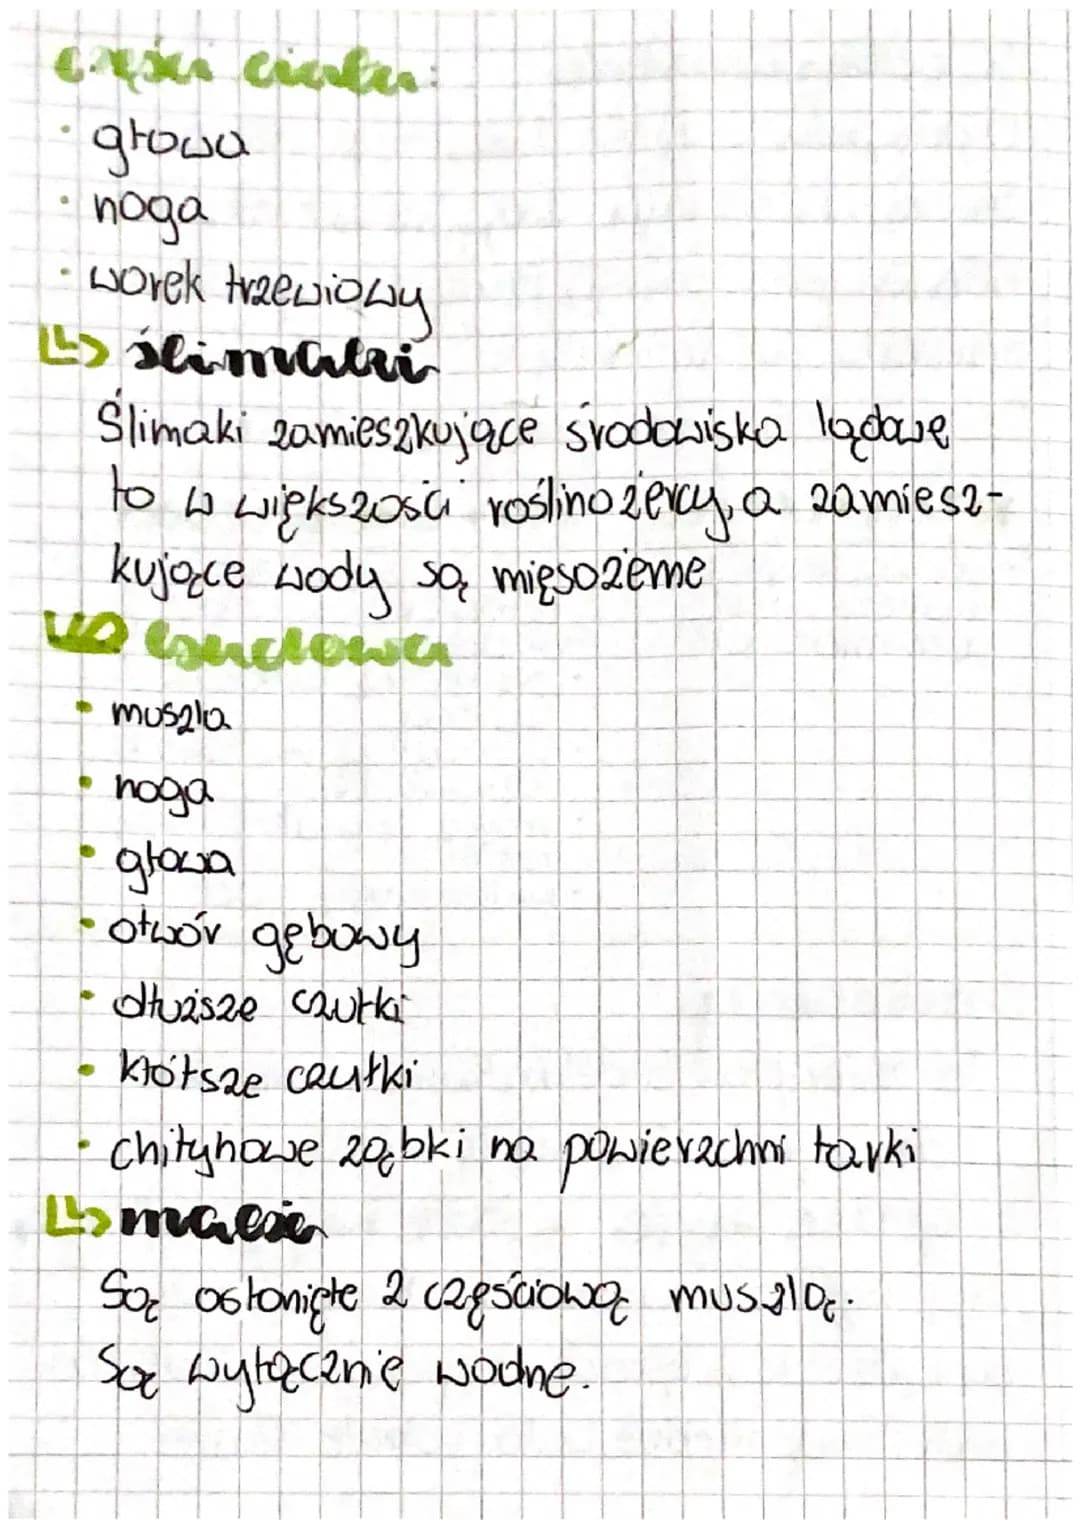 części ciała:
· głowa
· noga
· worek trzewiowy
↳ ślimaki
Ślimaki zamieszkujące środowiska lądowe
to w większości roślinożercy, a zamiesz-
kujące wody są mięsożerne
↳ budowa
· muszla
· noga
· głowa
· otwór gębowy
· dłuższe czułki
· krótsze czułki
· chitynowe ząbki na powierzchni tarki
↳ małże
Są osłonięte 2 częściową muszlą.
Są wyłącznie wodne.